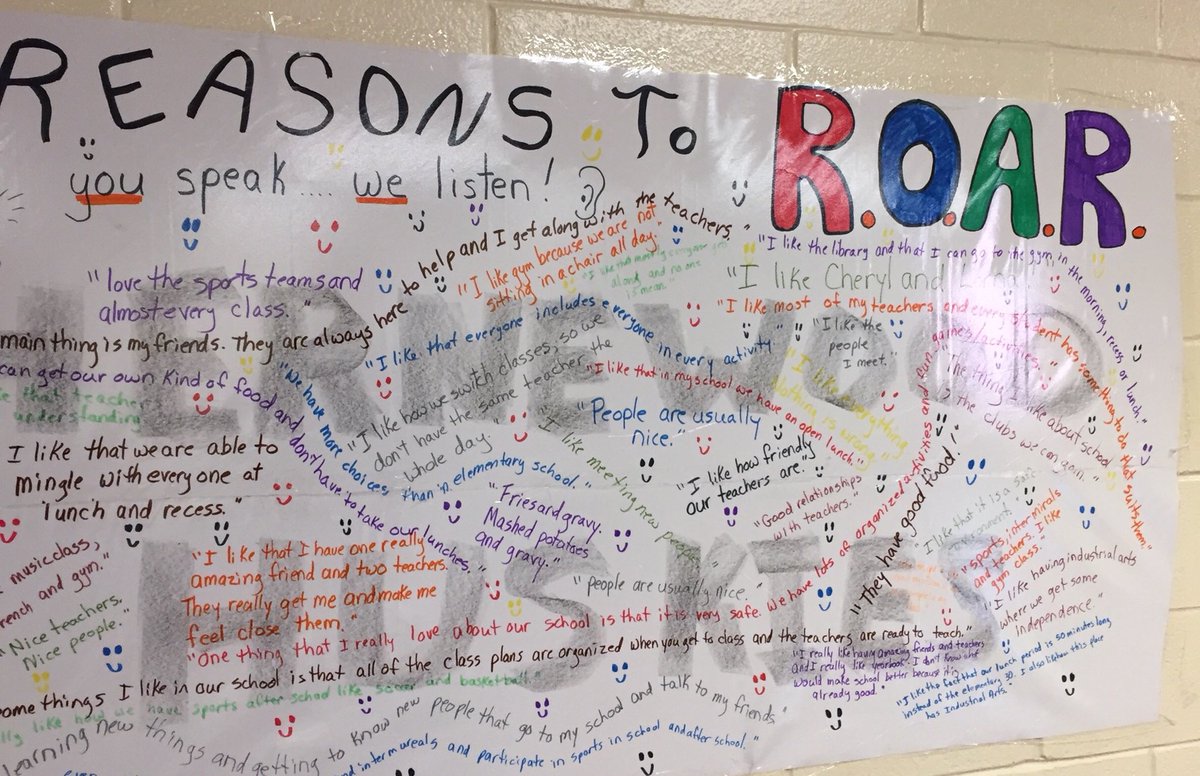 REASONS To R.O.A.R.
you speak.... we listen!
"love the sports teams and
almost every class."
main thing is my friends. They are always here to help and I get along with the teachers."
"I like gym because we are not
sitting in a chair all day."
"I like that most everyone gets
along and no one
is mean."
"I like the library and that I can go to the gym, in the morning, recess or lunch."
"I like Cheryl and
"I like most of my teachers and every student has something to do that suits them."
can get our own kind of food and don't have to take our lunches."
that teacher
understanding
"I like that everyone includes everyone in every activity"
"I like the
people
I meet."
"We have more choices than in elementary school."
"I like how we switch classes, so we
don't have the same teacher the
whole day."
"I like that in my school we have an open lunch."
"I like everything
Nothing is wrong"
"People are usually
nice."
"The thing I like about school
the clubs we can gain."
I like that we are able to
mingle with everyone at
lunch and recess."
"I like meeting new people"
"I like how friendly
our teachers are."
"Fries and gravy.
Mashed potatoes
and gravy."
"Good relationships
with teachers."
"They have good food!"
"I like that it is a safe
environment."
"sports, intermirals
and teachers. I like
gym class."
music class,
french and gym."
"I like that I have one really
amazing friend and two teachers.
They really get me and make me
feel close them."
"people are usually nice."
"I like having industrial arts
where we get some
independence."
"Nice teachers.
Nice people."
"One thing that I really love about our school is that it is very safe. We have lots of organized activities and fun games/activities."
some things I like in our school is that all of the class plans are organized when you get to class and the teachers are ready to teach."
"I really like having amazing friends and teachers
and I really like yearbook. I don't know what
would make school better because it's
already good."
like how we have sports after school like soccer and basketball."
"I like the fact that our lunch period is 50 minutes long
instead of the elementary 30. I also like how this place
has Industrial Arts."
learning new things and getting to know new people that go to my school and talk to my friends"
and intermureals and participate in sports in school and after school."
HERNEWOOD
HUSKIES